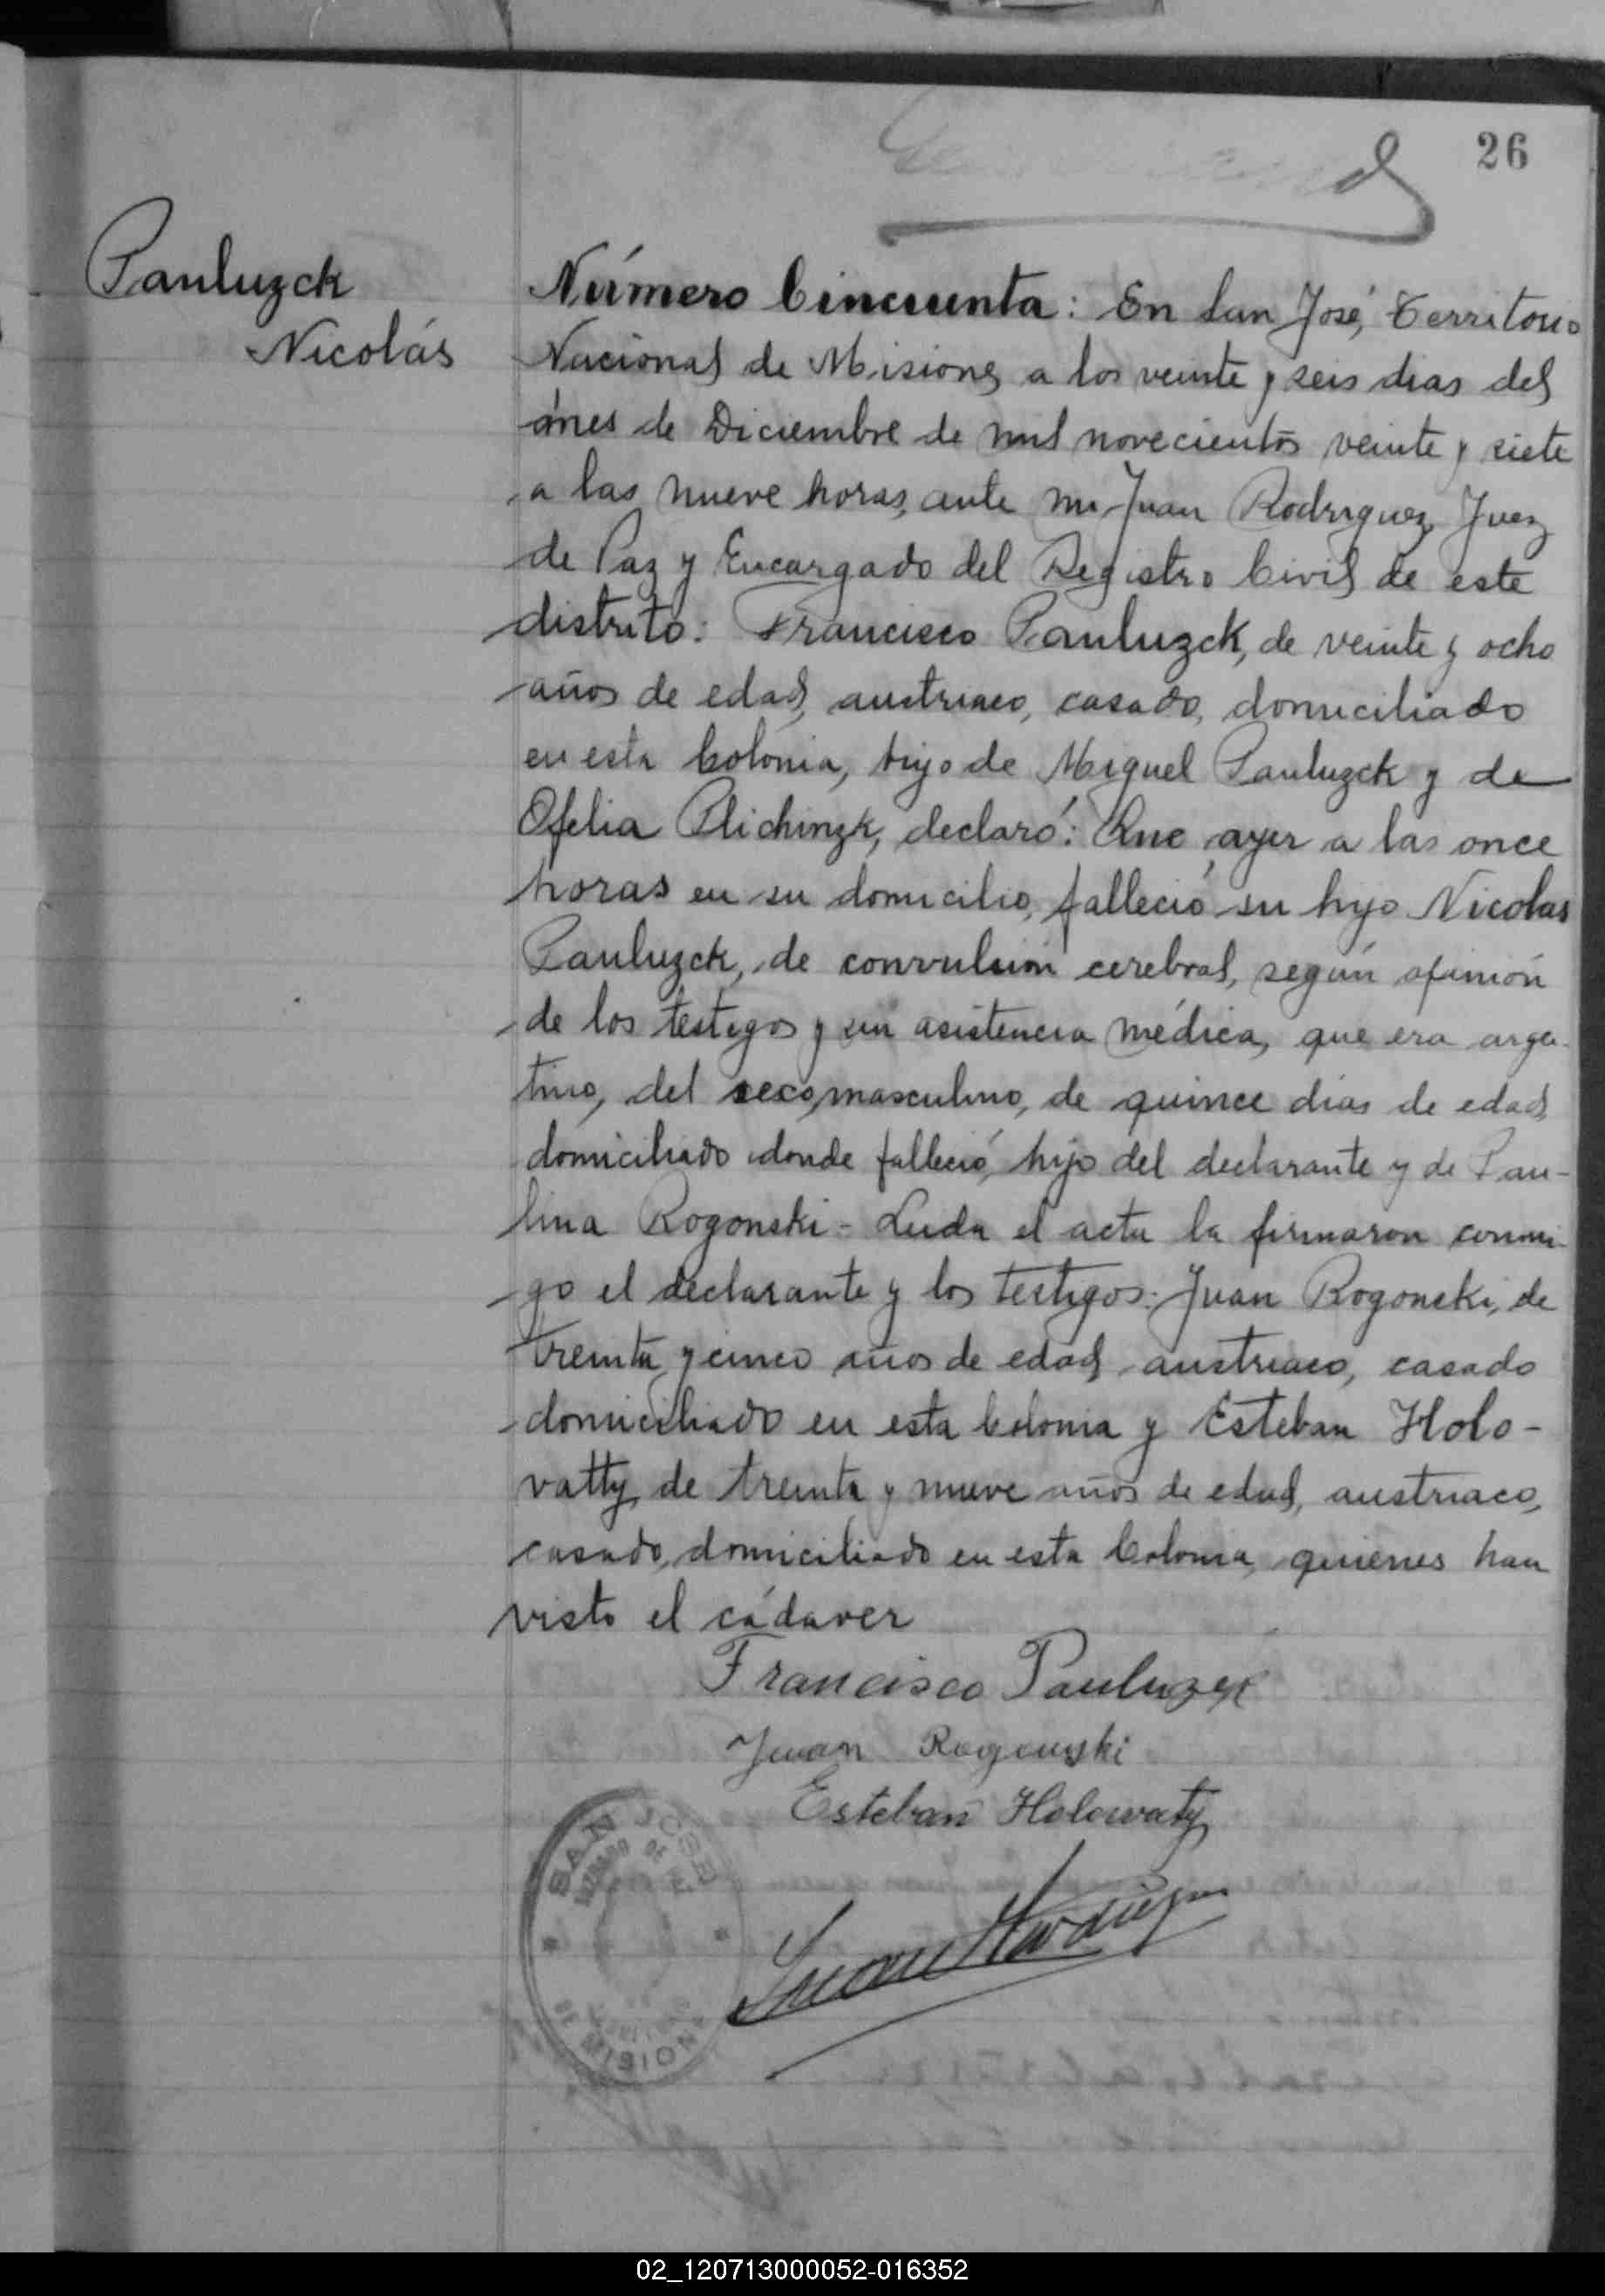 26
Pauluzck
Nicolás
Número Cincuenta: En San José, Territorio
Nacional de Misiones a los veinte y seis dias del
mes de Diciembre de mil novecientos veinte y siete
a las nueve horas, ante mi Juan Rodriguez, Juez
de Paz y Encargado del Registro Civil de este
distrito: Francisco Pauluzck, de veinte y ocho
años de edad, austriaco, casado, domiciliado
en esta Colonia, hijo de Miguel Pauluzck y de
Ofelia Plichinzk, declaró: Que ayer a las once
horas en su domicilio, falleció su hijo Nicolas
Pauluzck, de convulsión cerebral, según opinión
de los testigos y sin asistencia médica, que era argen-
tino, del sexo masculino, de quince dias de edad,
domiciliado donde falleció, hijo del declarante y de Pau-
lina Rogonski - Leida el acta la firmaron conmi-
go el declarante y los testigos: Juan Rogonski, de
treinta y cinco años de edad, austriaco, casado
domiciliado en esta Colonia y Esteban Holo-
vatty, de treinta y nueve años de edad, austriaco,
casado, domiciliado en esta Colonia, quienes han
visto el cádaver
Francisco Pauluzck
Juan Rogowski
Esteban Holowaty
Juan Rodriguez
SAN JOSE
JUZGADO DE PAZ
DE MISIONES
02_120713000052-016352